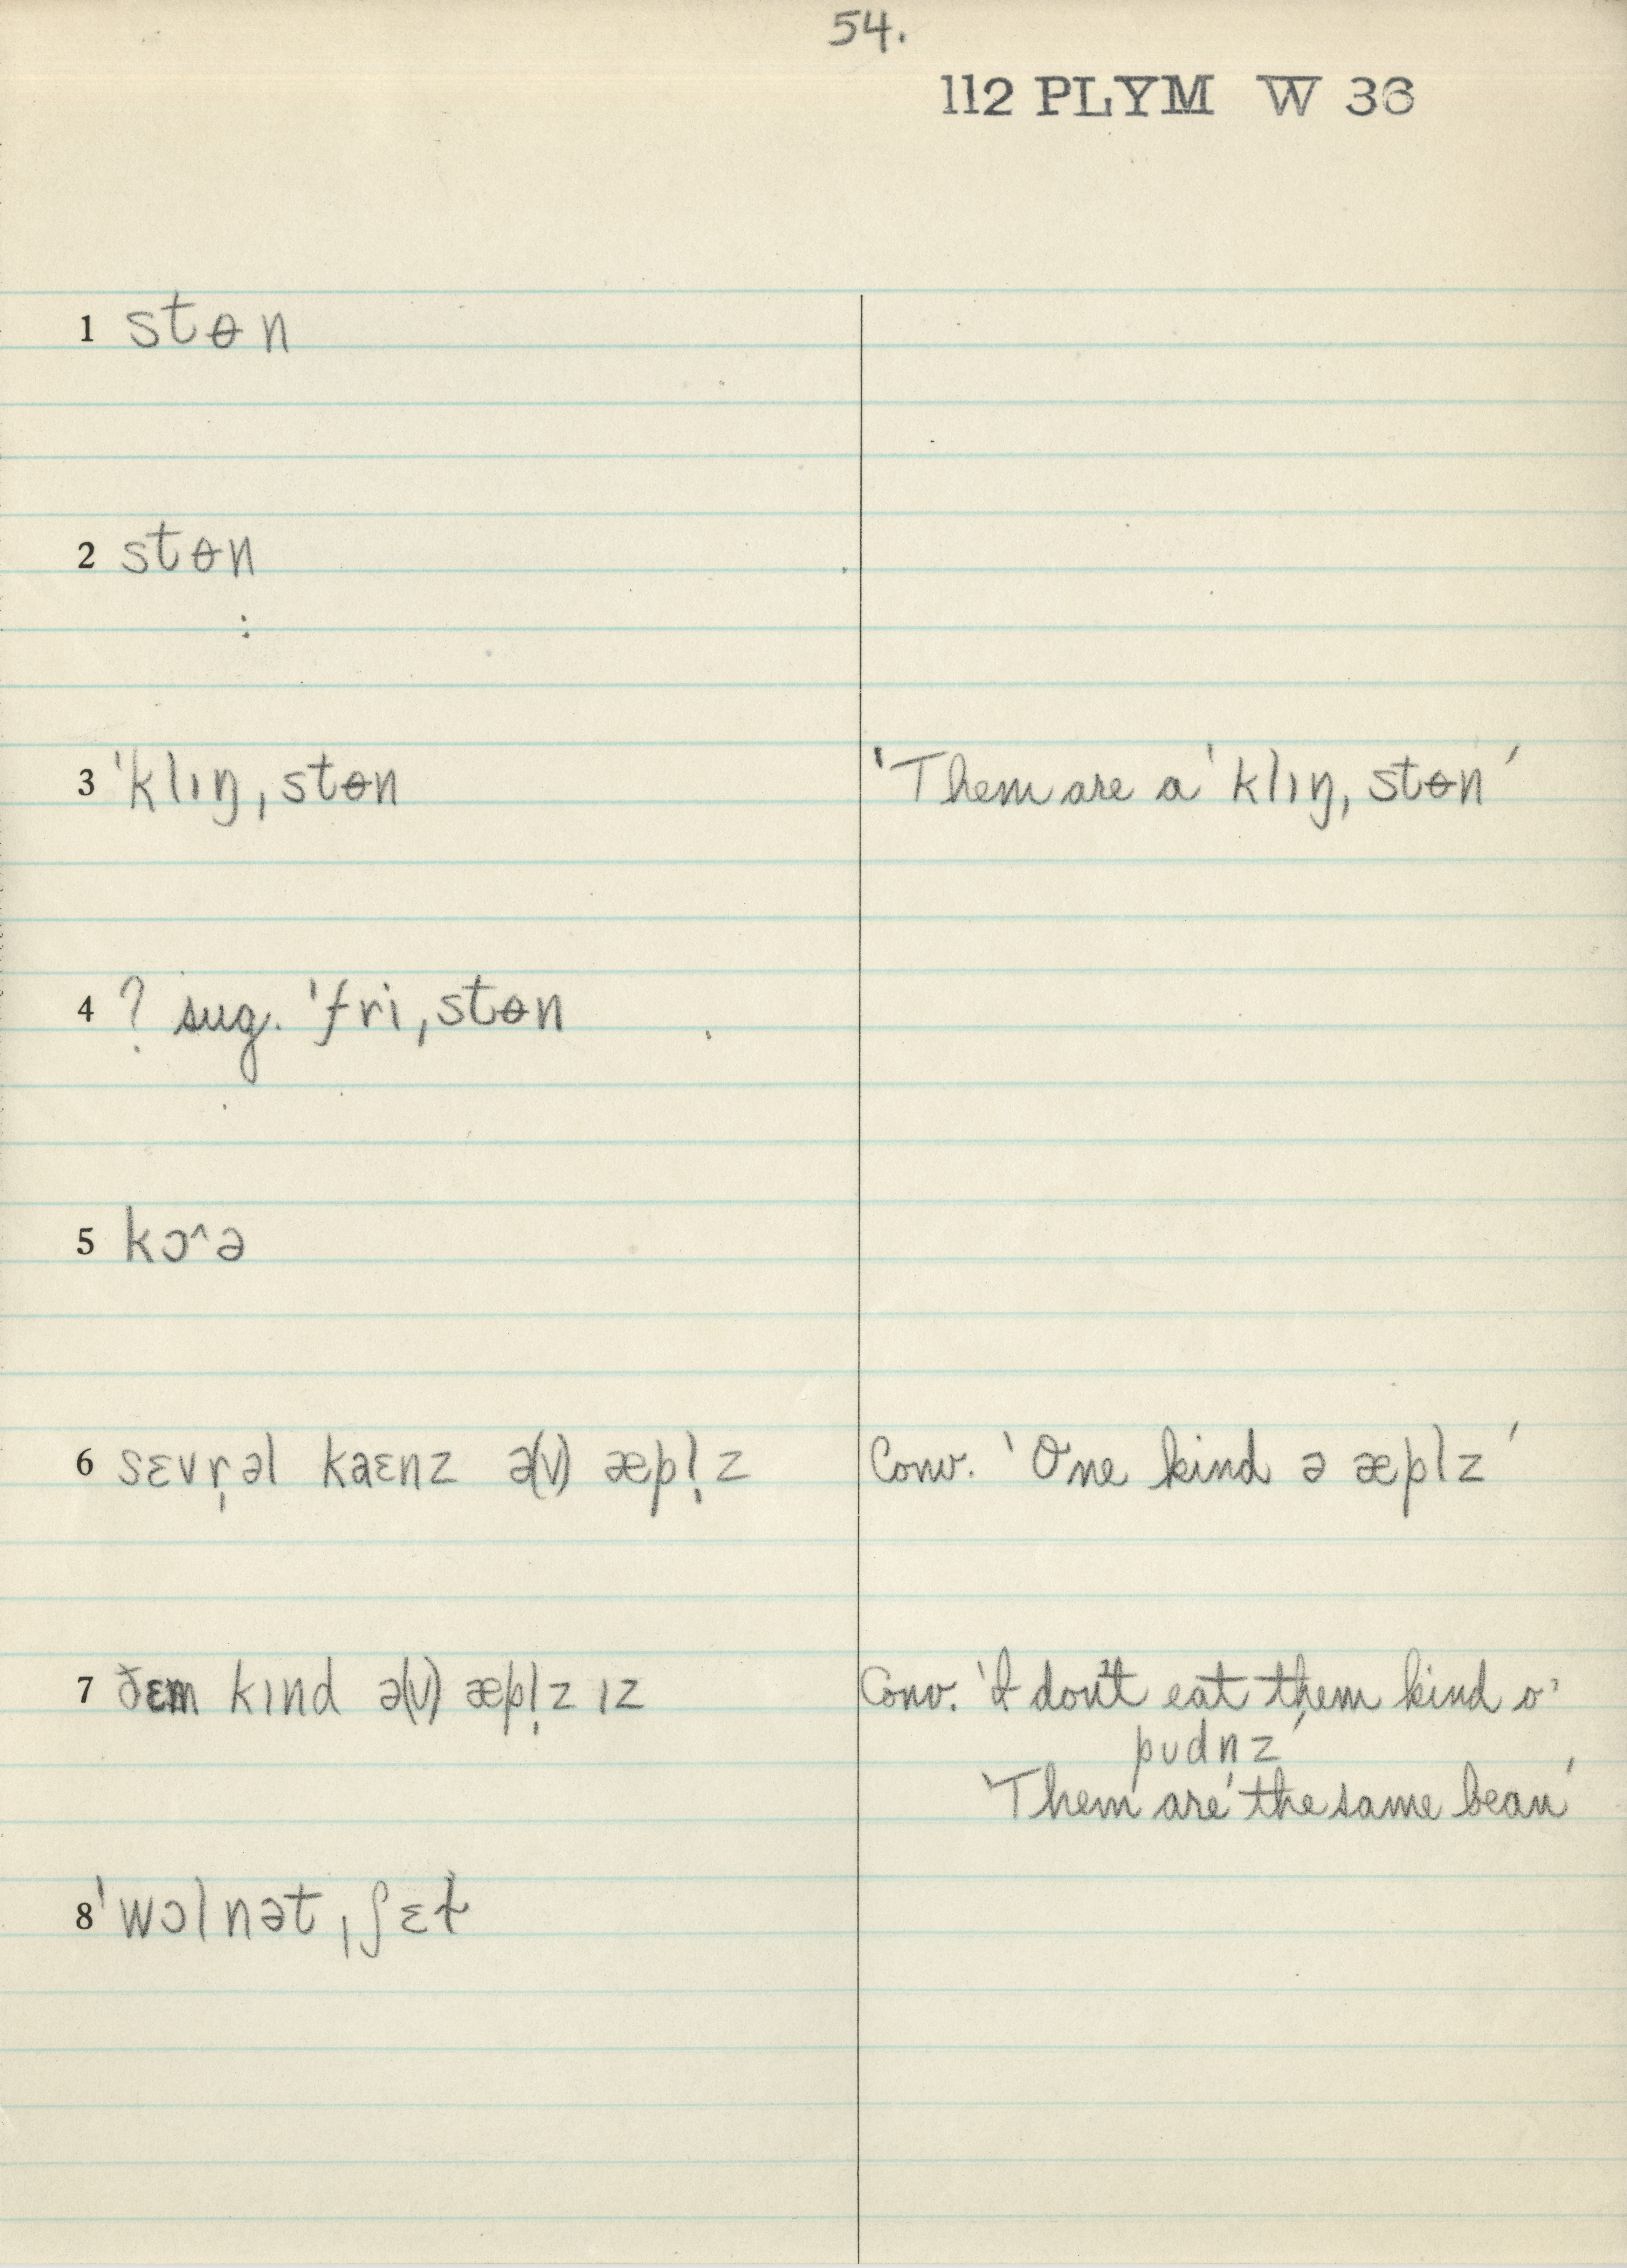 54.
112 PLYM W 36
1 stɵn
2 stɵn
3 ˈklıŋˌstɵn 'Them are a ˈklıŋˌstɵn'
4 ? sug. ˈfriˌstɵn
5 kɔ^ə
6 sɛvr̩əl kaɛnz ə(v) æpl̩z Conv. 'One kind ə æplz'
7 ðɛm kınd ə(v) æpl̩z ız Conv. 'I don't eat them kind o'
pudnz'
'Them are the same bean'
8 ˈwɔlnətˌʃɛɫ